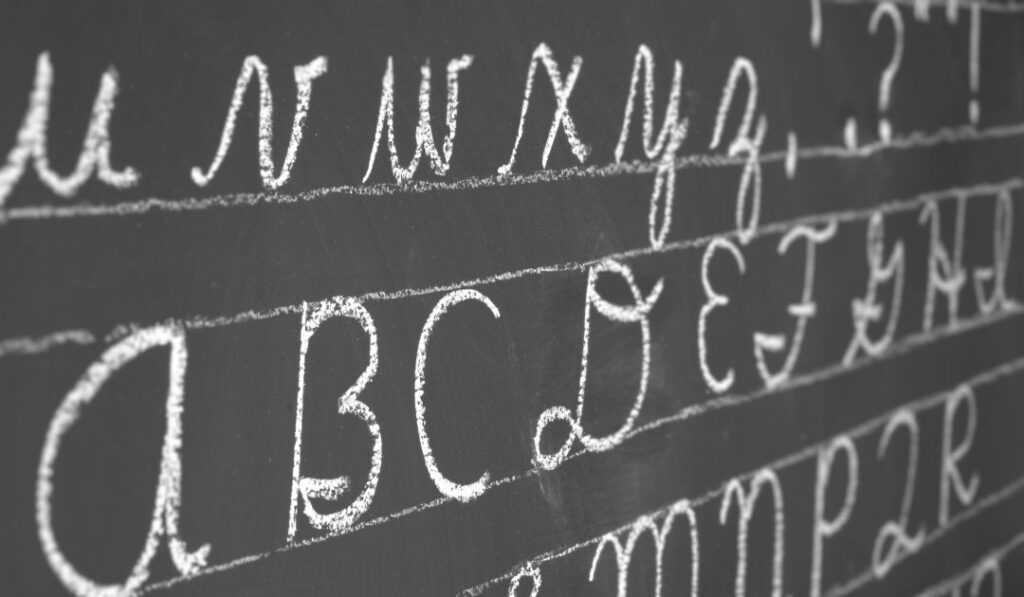 u v w x y z , . ? " " !
A B C D E F G H I
M N P Q R